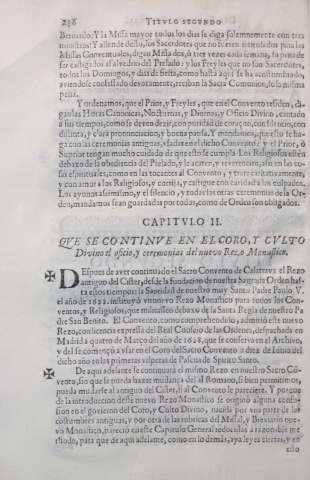 236 TITVLO SEGVNDO
Bernardo: Y la Missa mayor todos los dias se diga solemnemente con tres
ministros: Y allende desto, los Sacerdotes que no fueren intitulados para las
Missas Conventuales, digan Missa dos, ò tres vezes cada semana, so pena de
ser castigados al alvedrio del Prelado: y los Freyles que no son Sacerdotes,
todos los Domingos, y dias de fiesta, como hasta aqui se ha acostumbrado,
aviendose confessado devotamente, reciban la Sacra Comunion, so la misma
pena.
Y ordenamos, que el Prior, y Freyles, que en el Convento residen, di-
gan las Horas Canonicas, Nocturnas, y Diurnas, y Oficio Divino, cantado
a sus tiempos, como se deven dezir, con puridad de coraçon, con silencio, con
distinta, y clara pronunciacion, y buena pausa. Y mandamos, que esto se ha-
ga con las ceremonias antiguas, vsadas en el dicho Convento: y el Prior, ò
Suprior tengan mucho cuidado de que esto se cumpla. Los Religiosos estèn
debaxo de la obediencia del Prelado, y le acaten, y reverencien, assi en las co-
sas espirituales, como en las tocantes al Convento, y trate caritativamente,
y con amor a los Religiosos, y corrija, y castigue con caridad a los culpados.
Los ayunos assimismo, y el silencio, y todas las otras ceremonias de la Or-
den, mandamos sean guardadas por todos, como de Orden son obligados.
CAPITVLO II.
QVE SE CONTINVE EN EL CORO, Y CVLTO
Divino el oficio, y ceremonias del nuevo Rezo Monastico.
DEspues de aver continuado el Sacro Convento de Calatrava el Rezo
antiguo del Cister, desde la fundacion de nuestra Sagrada Orden has-
ta estos tiempos: la Santidad de nuestro muy Santo Padre Paulo V.
el año de instituyò vn nuevo Rezo Monastico para todos los Con-
ventos, y Religiosos, que militassen debaxo de la Santa Regla de nuestro Pa-
dre San Benito. El Convento, como comprehendido, admitiò este nuevo
Rezo, con licencia expressa del Real Consejo de las Ordenes, despachada en
Madrid a quatro de Março del año de que se conserva en el Archivo,
y del se començò a vsar en el Coro del Sacro Convento a doze de Iunio del
dicho año en las primeras visperas de Pascua de Spiritu Santo.
De aqui adelante se continuarà el mismo Rezo en nuestro Sacro Cõ-
vento, sin que se pueda hazer mudança del al Romano, si bien permitimos,
pueda mudarse al antiguo del Cister, si al Convento le pareciere. Y porque
de la introduccion deste nuevo Rezo Monastico se originò alguna confu-
sion en el govierno del Coro, y Culto Divino, nacida por vna parte de las
costumbres antiguas, y por otra de las rubricas del Missal, y Breviario nue-
vo Monastico, pareciò en este Capitulo General reduzirlas a razonable me-
thodo, para que de aqui adelante, como en lo demàs, aya ley es ciertas, y en
ello